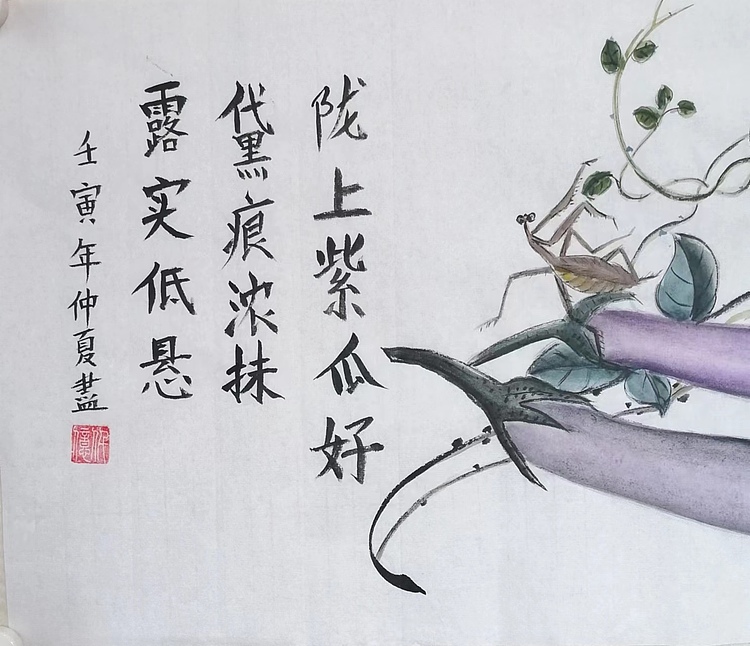 陇上紫瓜好
黛痕浓抹
露实低悬
壬寅年仲夏畫